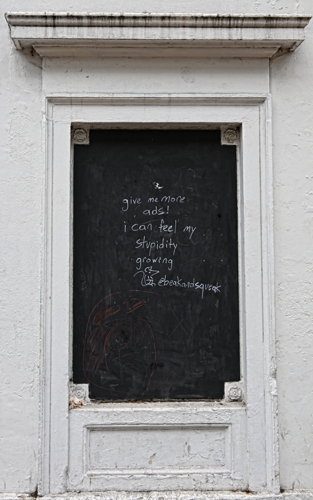 give me more
ads!
i can feel my
stupidity
growing
@beakandsqueak